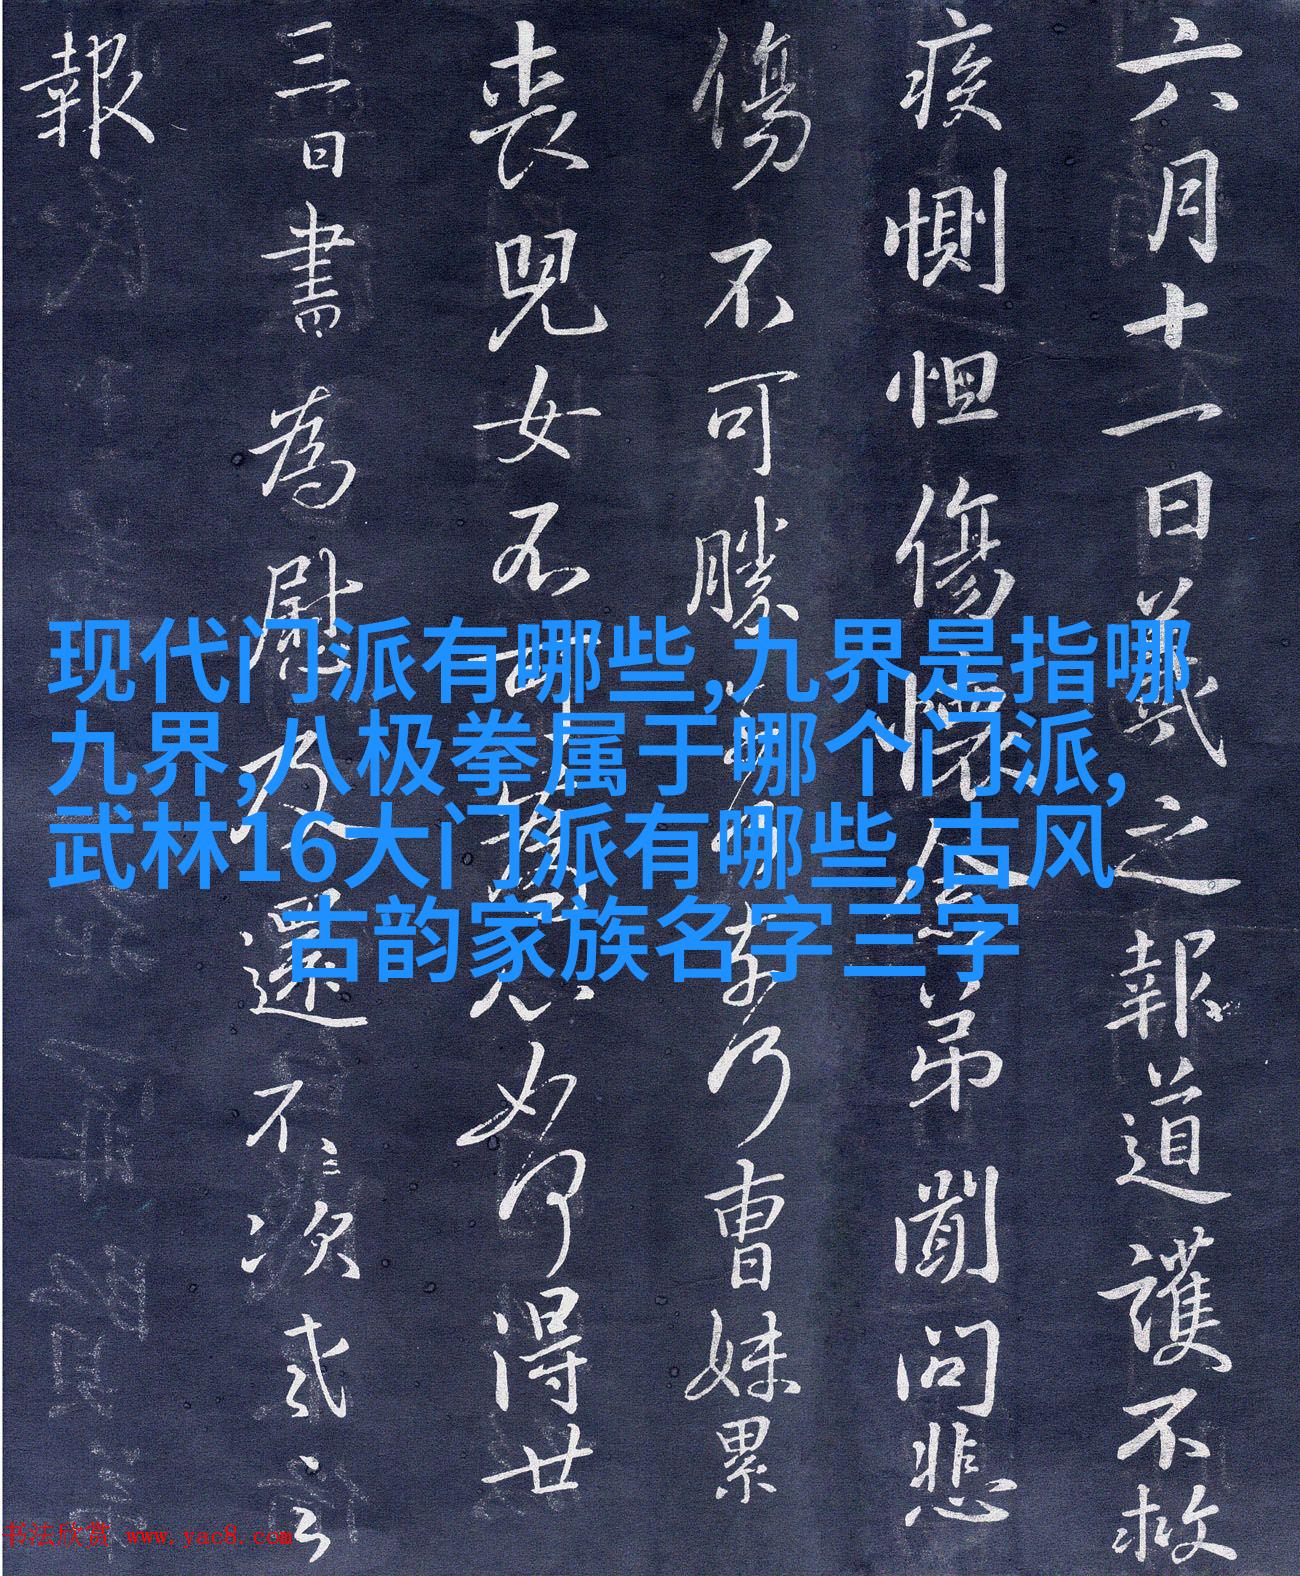 六月十一日羲之報道護不救
疾惻怛傷懷念弟聞問悲
傷不可勝奈何曹妹累
喪兒女不可為心如何得廿
三日書為慰及還不次羲之
報
现代门派有哪些,九界是指哪
九界,八极拳属于哪个门派,
武林16大门派有哪些,古风
古韵家族名字三字
书法欣赏 www.yac8.com